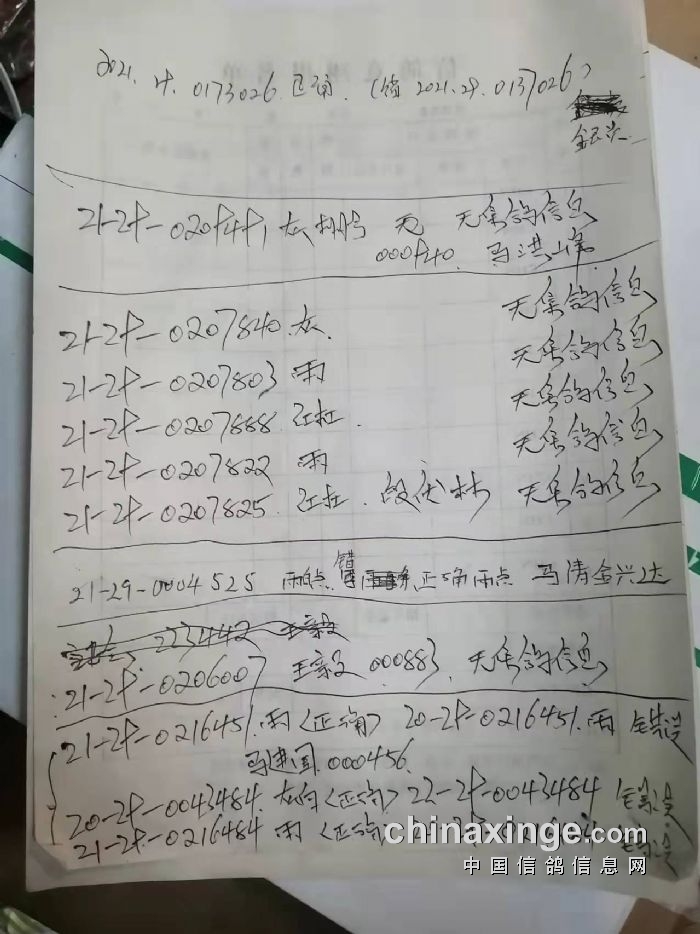 2021.29.0173026.正确.(错 2021.29.0137026)
21-29-020 灰 无 无集鸽信息
马洪
21-29-0207840 灰 无集鸽信息
21-29-0207803 雨 无集鸽信息
21-29-0207888 红杠. 无集鸽信息
21-29-0207822 雨 无集鸽信息
21-29-0207825 红杠. 段伏林 无集鸽信息
21-29-0004525 雨点 错 正确雨点 马清金兴达
223442
21-29-0206007 王家文 000883. 无集鸽信息
21-29-0216451.雨〈正确〉20-29-0216451.雨 错误
马建国.000456
20-29-0043484.灰白〈正确〉22-29-0043484 错误
21-29-0216484 雨〈正确
chinaxinge.com
中国信鸽信息网